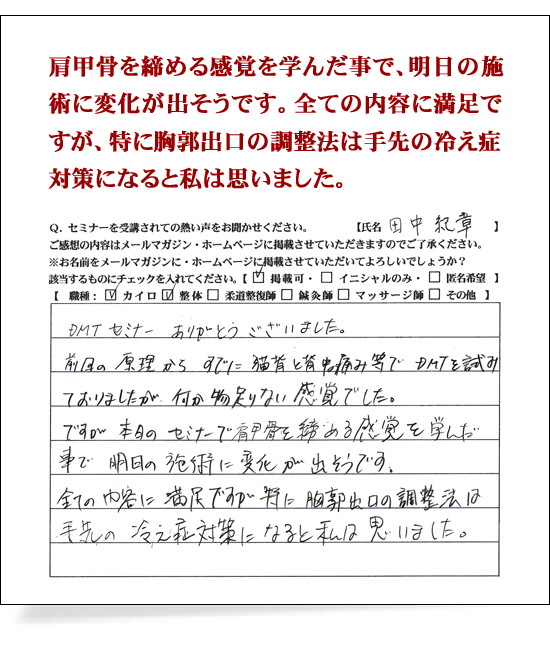 肩甲骨を締める感覚を学んだ事で、明日の施
術に変化が出そうです。全ての内容に満足で
すが、特に胸郭出口の調整法は手先の冷え症
対策になると私は思いました。
Q. セミナーを受講されての熱い声をお聞かせください。 【氏名 田中 紀章 】
ご感想の内容はメールマガジン・ホームページに掲載させていただきますのでご了承ください。
※お名前をメールマガジンに・ホームページに掲載させていただいてよろしいでしょうか?
該当するものにチェックを入れてください。【 ☑ 掲載可・ □ イニシャルのみ・ □ 匿名希望 】
【 職種： ☑ カイロ ☑ 整体 □ 柔道整復師 □ 鍼灸師 □ マッサージ師 □ その他 】
DMTセミナー ありがとうございました。
前回の原理から すでに 猫背と背中痛み等で DMTを試み
ておりましたが 何か物足りない感覚でした。
ですが 本日の セミナーで肩甲骨を締める感覚を学んだ
事で 明日の施術に変化が出そうです。
全ての内容に満足ですが 特に 胸郭出口の調整法は
手先の 冷え症対策になると私は思いました。